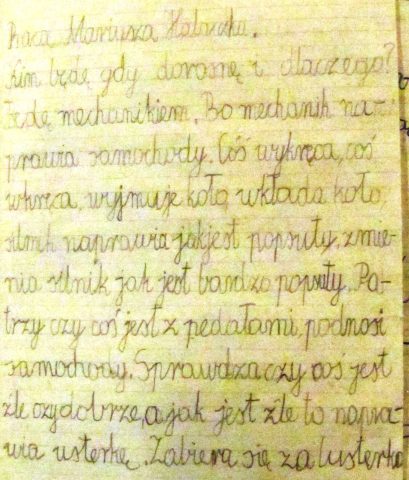 Praca Mariusza
Kim będę gdy dorosnę i dlaczego?
Będę mechanikiem. Bo mechanik na-
prawia samochody. Coś wykręca, coś
wkręca, wyjmuje koła, wkłada koło,
silnik naprawia jak jest popsuty, zmie-
nia silnik jak jest bardzo popsuty. Pa-
trzy czy coś jest z pedałami, podnosi
samochody. Sprawdza czy coś jest
źle czy dobrze, a jak jest źle to napra-
wia usterkę. Zabiera się za lusterka